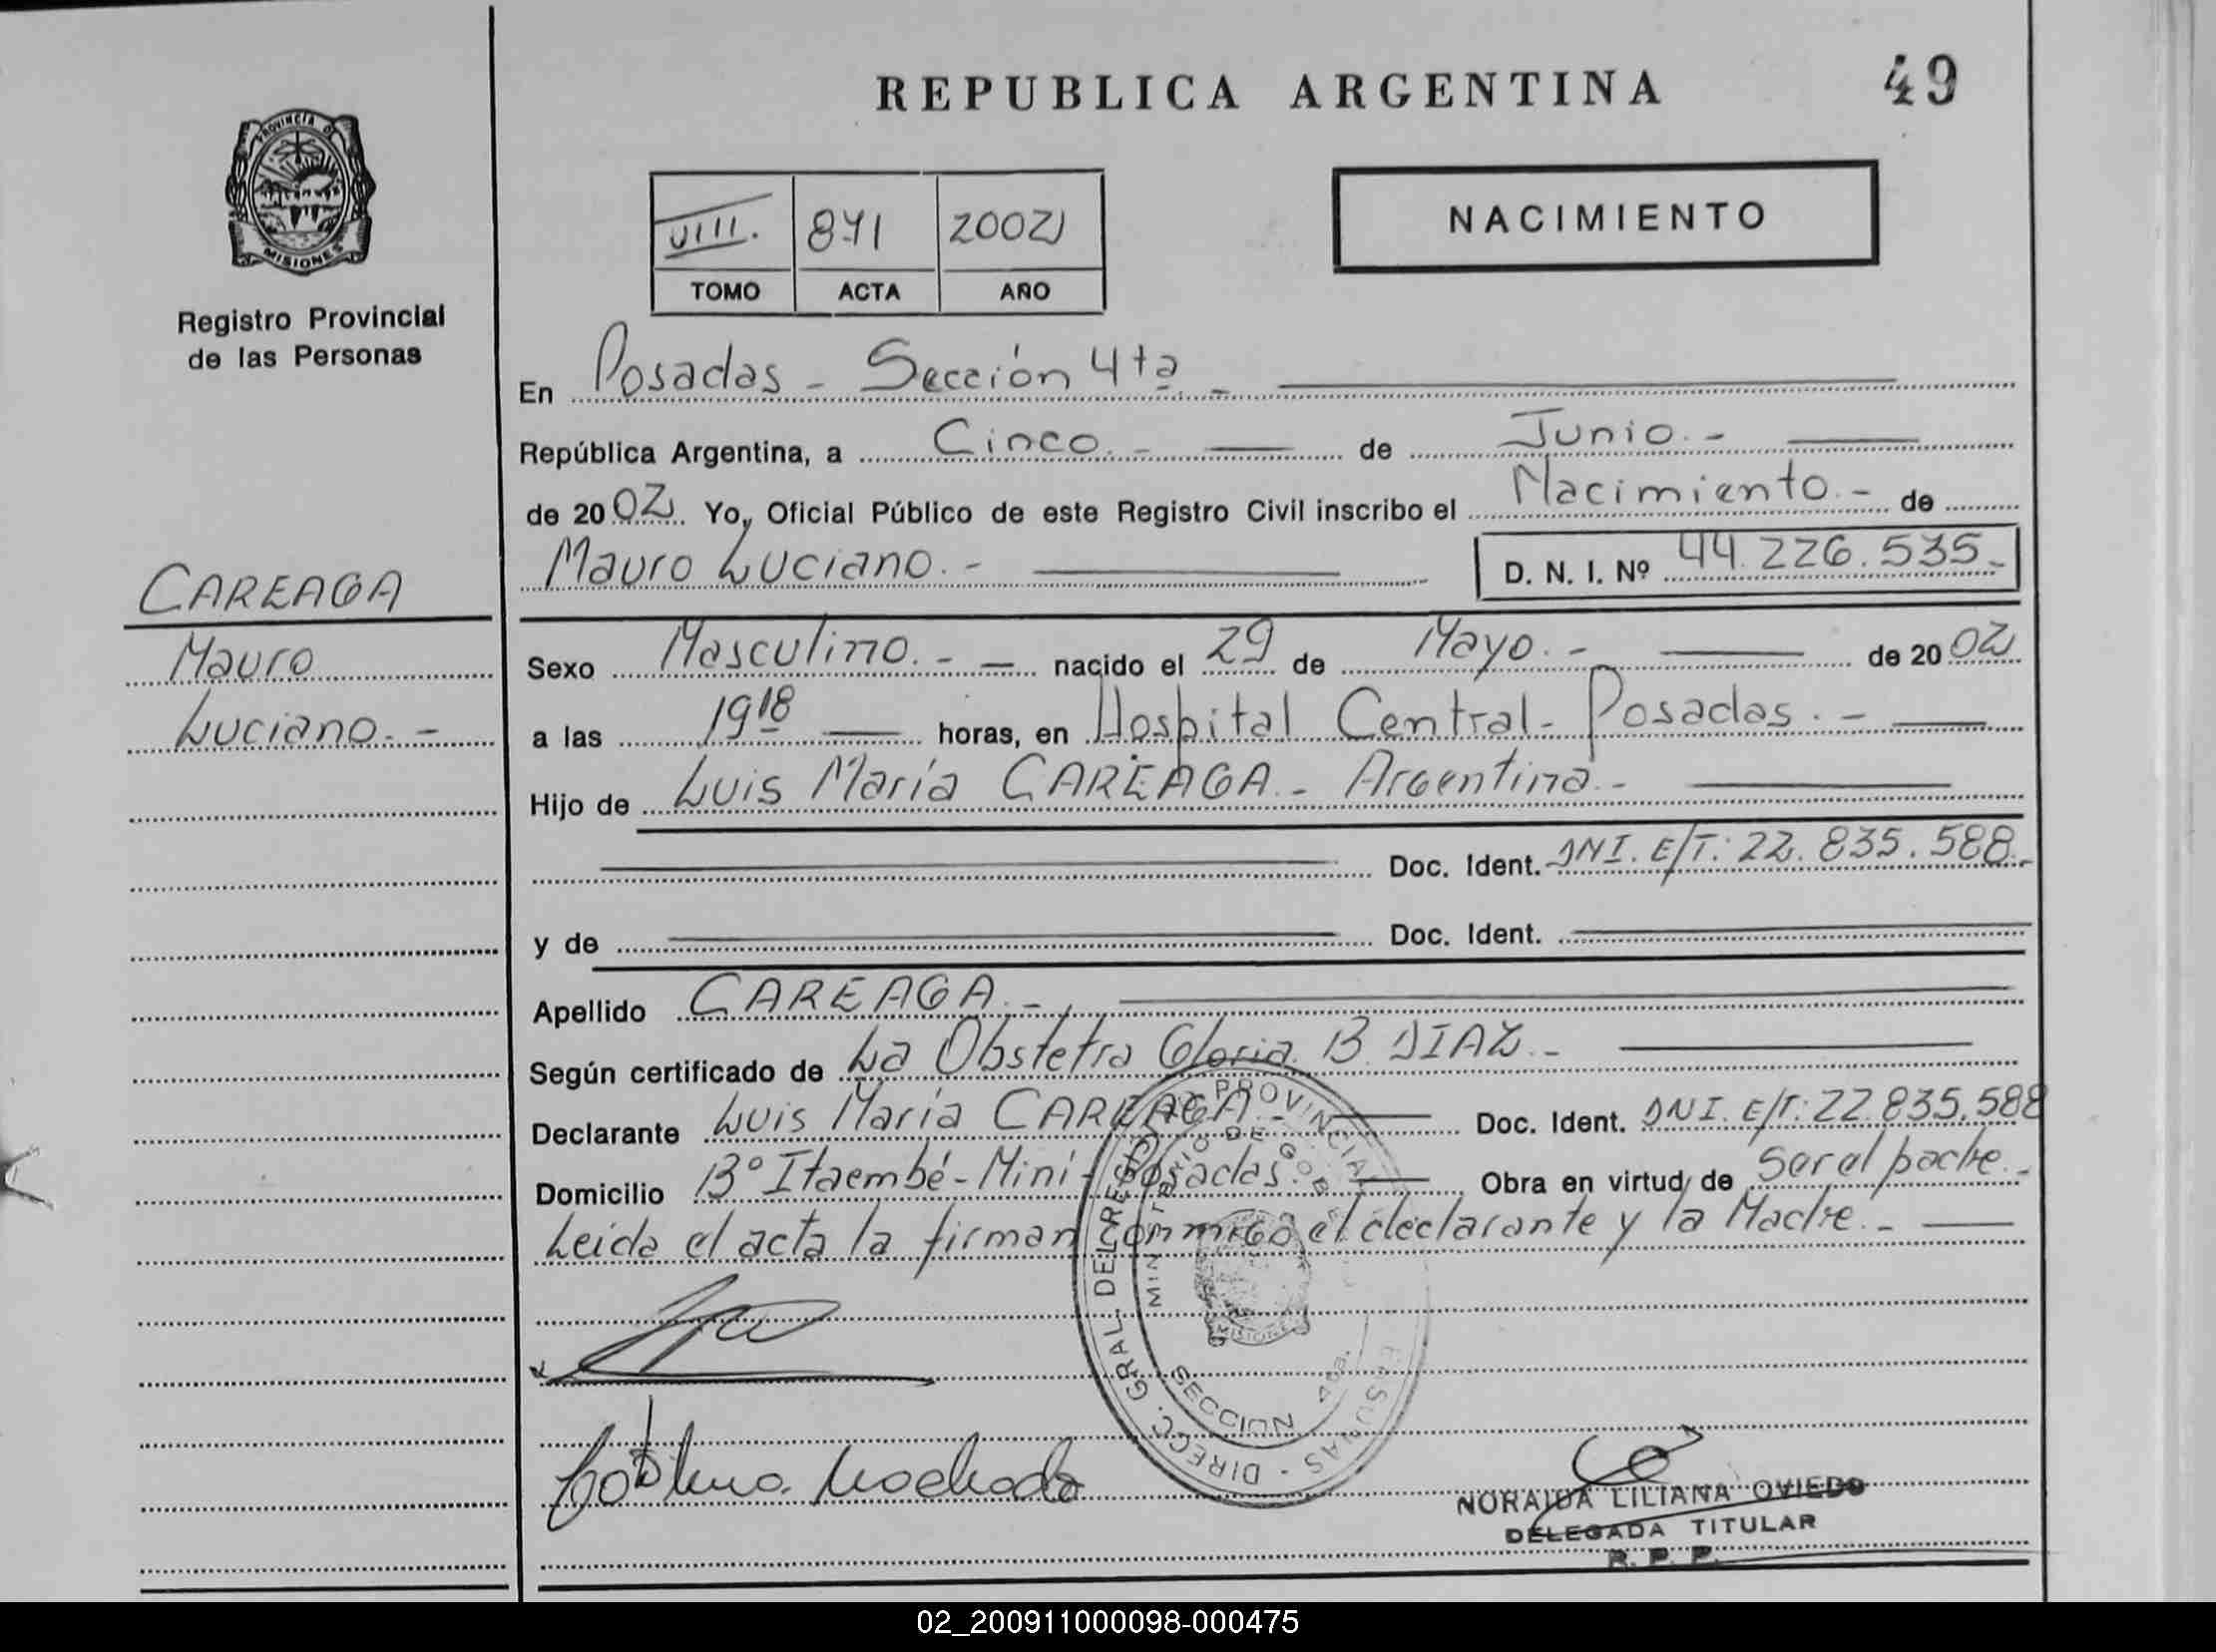 REPUBLICA ARGENTINA
49
PROVINCIA DE
MISIONES
Registro Provincial
de las Personas
VIII. 841 2002
TOMO ACTA AÑO
NACIMIENTO
En Posadas - Sección 4ta -
República Argentina, a Cinco.- de Junio.-
de 2002 Yo, Oficial Público de este Registro Civil inscribo el Nacimiento.- de
Mauro Luciano.-
D. N. I. Nº 44.226.535-
CAREAGA
Mauro
Luciano.-
Sexo Masculino.- nacido el 29 de Mayo.- de 2002
a las 19 18 horas, en Hospital Central - Posadas.-
Hijo de Luis María CAREAGA - Argentina.-
Doc. Ident. DNI. E/T: 22.835.588.-
y de Doc. Ident.
Apellido CAREAGA.-
Según certificado de La Obstetra Gloria B DIAZ.-
Declarante Luis María CAREAGA.- Doc. Ident. DNI. E/T: 22.835.588
Domicilio Bº Itaembé - Miní - Posadas.- Obra en virtud de Ser el padre.-
Leida el acta la firman conmigo el declarante y la Madre.-
DIRECC. GRAL. DEL REG. PROVINCIAL
SECCION 4ta.
MISIONES
NORAIDA LILIANA OVIEDO
DELEGADA TITULAR
R. P. P.
02_200911000098-000475